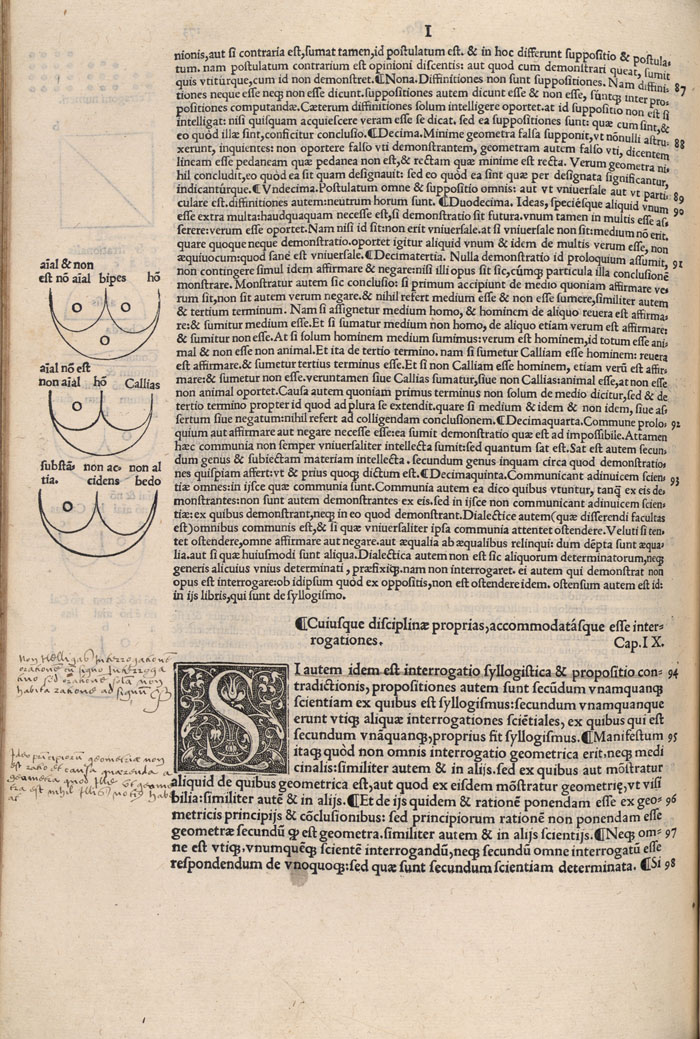 I
nionis,aut si contraria est,sumat tamen,id postulatum est. & in hoc differunt suppositio & postula-
tum. nam postulatum contrarium est opinioni discentis: aut quod cum demonstrari queat, sumit
quis vtitúrque,cum id non demonstret.¶Nona.Diffinitiones non sunt suppositiones. Nam diffini- 87
tiones neque esse neqȝ non esse dicunt.suppositiones autem dicunt esse & non esse, súntqȝ inter pro-
positiones computandæ.Cæterum diffinitiones solum intelligere oportet.at id suppositio non est si
intelligat: nisi quisquam acquiescere veram esse se dicat. sed ea suppositiones sunt: quæ cum sint,&
eo quòd illæ sint,conficitur conclusio.¶Decima.Minime geometra falsa supponit,vt nōnulli astru- 88
xerunt, inquientes: non oportere falso vti demonstrantem, geometram autem falso vti, dicentem
lineam esse pedaneam quæ pedanea non est,& rectam quæ minime est recta. Verum geometra ni-
hil concludit,eo quòd ea sit quam designauit: sed eo quòd ea sint quæ per designata significantur,
indicantúrque.¶Vndecima.Postulatum omne & suppositio omnis: aut vt vniuersale aut vt parti- 89
culare est.diffinitiones autem:neutrum horum sunt.¶Duodecima. Ideas, speciésque aliquid vnum 90
esse extra multa:haudquaquam necesse est,si demonstratio sit futura.vnum tamen in multis esse as-
serere:verum esse oportet.Nam nisi id sit:non erit vniuersale.at si vniuersale non sit:medium nō erit.
quare quoque neque demonstratio.oportet igitur aliquid vnum & idem de multis verum esse, non
æquiuocum:quod sane est vniuersale.¶Decimatertia. Nulla demonstratio id proloquium assumit, 91
non contingere simul idem affirmare & negare:nisi illi opus sit sic,cúmqȝ particula illa conclusionē
monstrare. Monstratur autem sic conclusio: si primum accipiunt de medio quoniam affirmare ve-
rum sit,non sit autem verum negare.& nihil refert medium esse & non esse sumere,similiter autem
& tertium terminum. Nam si assignetur medium homo, & hominem de aliquo reuera est affirma-
re:& sumitur medium esse.Et si sumatur medium non homo, de aliquo etiam verum est affirmare:
& sumitur non esse.At si solum hominem medium sumimus:verum est hominem,id totum esse ani-
mal & non esse non animal.Et ita de tertio termino. nam si sumetur Calliam esse hominem: reuera
est affirmare.& sumetur tertius terminus esse.Et si non Calliam esse hominem, etiam verū est affir-
mare:& sumetur non esse.veruntamen siue Callias sumatur,siue non Callias:animal esse,at non esse
non animal oportet.Causa autem quoniam primus terminus non solum de medio dicitur,sed & de
tertio termino propter id quod ad plura se extendit.quare si medium & idem & non idem, siue as-
sertum siue negatum:nihil refert ad colligendam conclusionem.¶Decimaquarta.Commune prolo- 92
quium aut affirmare aut negare necesse esse:ea sumit demonstratio quæ est ad impossibile.Attamen
hæc communia non semper vniuersaliter intellecta sumit:sed quantum sat est.Sat est autem secun-
dum genus & subiectam materiam intellecta. secundum genus inquam circa quod demonstratio-
nes quispiam affert:vt & prius quoqȝ dictum est.¶Decimaquinta.Communicant adinuicem scien- 93
tiæ omnes:in ijsce quæ communia sunt.Communia autem ea dico quibus vtuntur, tanqȝ ex eis de-
monstrantes:non sunt autem demonstrantes ex eis.sed in ijsce non communicant adinuicem scien-
tiæ:ex quibus demonstrant,neqȝ in eo quod demonstrant.Dialectice autem(quæ differendi facultas
est)omnibus communis est,& si quæ vniuersaliter ipsa communia attentet ostendere.Veluti si ten-
tet ostendere,omne affirmare aut negare.aut æqualia ab æqualibus relinqui: dum dēpta sunt æqua-
lia.aut si quæ huiusmodi sunt aliqua.Dialectica autem non est sic aliquorum determinatorum,neqȝ
generis alicuius vnius determinati, præfixiqȝ.nam non interrogaret. ei autem qui demonstrat non
opus est interrogare:ob idipsum quòd ex oppositis,non est ostendere idem. ostensum autem est id:
in ijs libris,qui sunt de syllogismo.
aīal & non
est nō aīal bipes hō
aīal nō est
non aīal hō Callias
substā- non ac- non al
tia. cidens bedo
¶Cuiusque disciplinæ proprias,accommodatásque esse inter-
rogationes. Cap.IX.
SI autem idem est interrogatio syllogistica & propositio con- 94
tradictionis, propositiones autem sunt secūdum vnamquanqȝ
scientiam ex quibus est syllogismus:secundum vnamquanque
erunt vtiqȝ aliquæ interrogationes sciētiales, ex quibus qui est
secundum vnāquanqȝ,proprius fit syllogismus.¶Manifestum 95
itaqȝ quòd non omnis interrogatio geometrica erit,neqȝ medi
cinalis:similiter autem & in alijs.sed ex quibus aut mōstratur
aliquid de quibus geometrica est,aut quod ex eisdem mōstratur geometriç,vt visi
bilia:similiter autē & in alijs.¶Et de ijs quidem & rationē ponendam esse ex geo- 96
metricis principijs & cōclusionibus: sed principiorum rationem non ponendam esse
geometræ secundū qȝ est geometra.similiter autem & in alijs scientijs.¶Neqȝ om- 97
ne est vtiqȝ.vnumquēqȝ scientē interrogandū,neqȝ secundū omne interrogatū esse
respondendum de vnoquoqȝ:sed quæ sunt secundum scientiam determinata. ¶Si 98